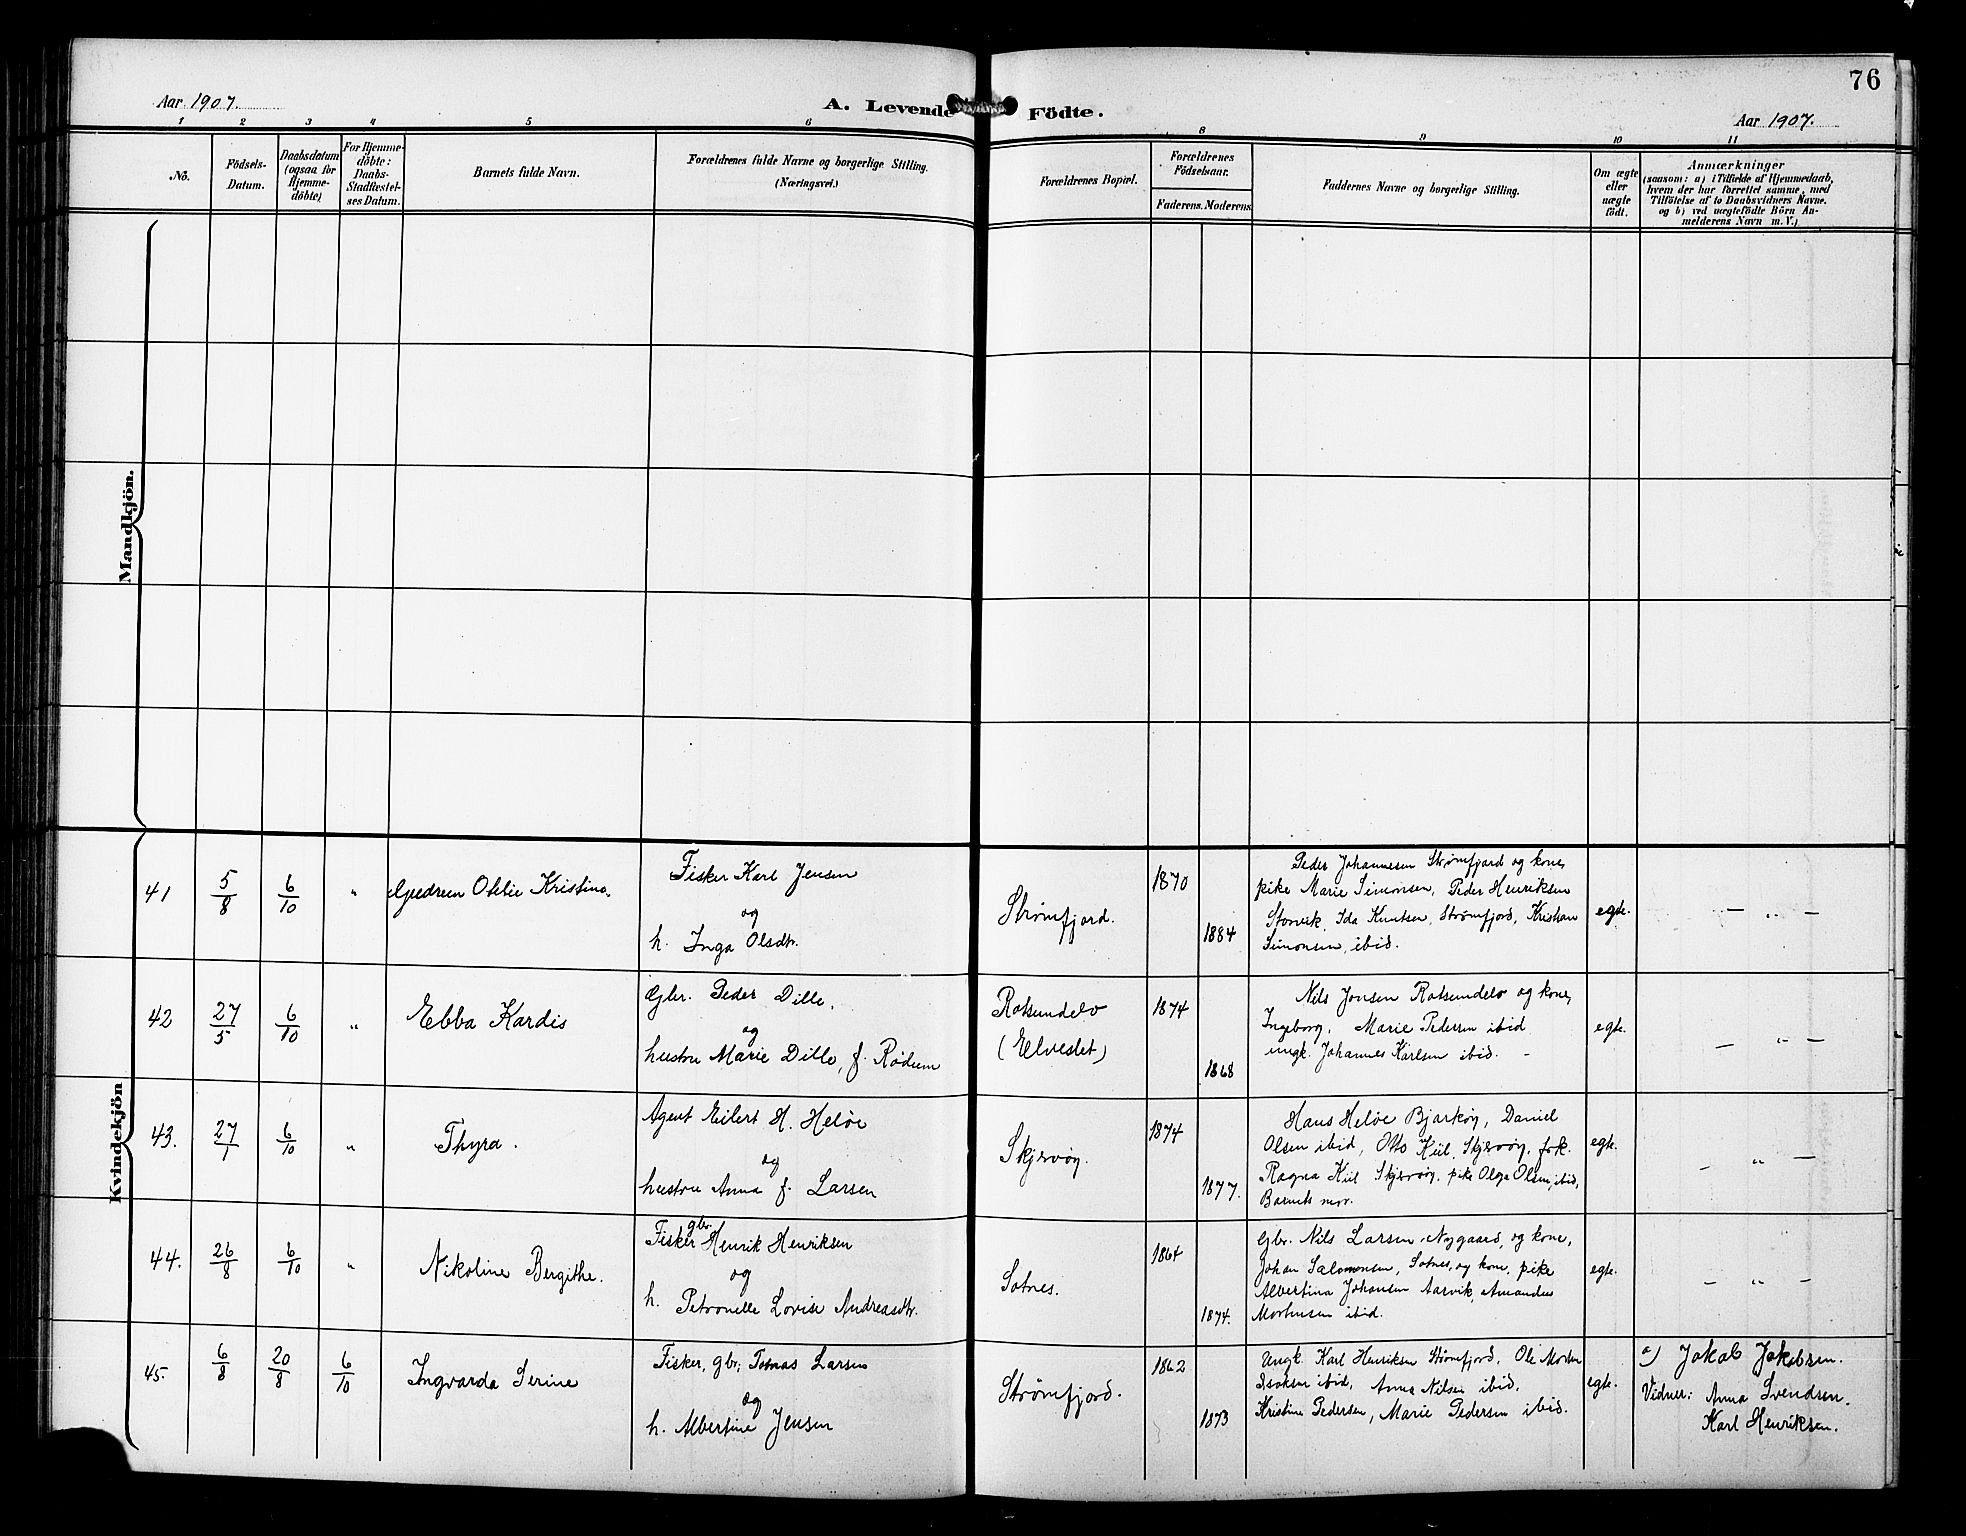 76
Aar 1907.
A. Levende Födte.
Aar 1907.
1 2 3 4 5 6 8 9 10 11
No.
Födsels-Datum.
Daabsdatum (ogsaa for Hjemme-döbte)
For Hjemme-döbte: Daabs-Stadfæstel-ses Datum.
Barnets fulde Navn.
Forældrenes fulde Navne og borgerlige Stilling.
(Næringsvei.)
Forældrenes Bopæl.
Forældrenes Födselsaar.
Faderens. Moderens.
Faddernes Navne og borgerlige Stilling.
Om ægte eller uægte födt.
Anmærkninger
(saasom: a) i Tilfælde af Hjemmedaab,
hvem der har forrettet samme, med
Tilföielse af to Daabsvidners Navne.
og b) ved uægtefödte Börn An-
melderens Navn m. V.)
Mandkjön.
Kvindekjön
41 5/8 6/10 "
Otilie Kristine
Fisker Karl Jensen
og
h. Inga Olsdtr.
Strømfjord.
1870
1884
Peder Johannessen Strømfjord og kone,
pike Marie Simonsen, Peder Henriksen
Storvik, Ida Knutsen, Strømfjord, Kristian
Simonsen, ibid.
egte.
— " —
42 27/5 6/10 "
Ebba Kardis
Gbr. Peder Dille,
og
hustru Marie Dille, f. Rødum
Rotsundelv
(Elveslet)
1874
1868
Nils Jensen Rotsundelv og kone,
Ingeborg, Marie Pedersen ibid
ungk. Johannes Karlsen ibid. -
egte.
— " —
43. 27/1 6/10 "
Thyra.
Agent Eilert H. Heløe
og
hustru Anna f. Larsen
Skjervøy.
1874
1877.
Hans Heløe Bjarkøy, Daniel
Olsen ibid, Otto Kiil, Skjervøy, frk.
Ragna Kiil Skjervøy, pike Olga Olsen, ibid,
Barnets mor.
egte.
— " —
44. 26/8 6/10 "
Nikoline Bergithe.
Fisker gbr. Henrik Henriksen
og
h. Petronelle Lovise Andreasdtr.
Sotnes.
1864
1874.
Gbr. Nils Larsen Nygaard, og kone,
Johan Salomonsen, Sotnes, og kone, pike
Albertina Johansen Aarvik, Amandus
Mortensen ibid.
egte.
— " —
45. 6/8 20/8 6/10
Ingvarda Serine
Fisker, gbr; Tomas Larsen
og
h. Albertine Jensen
Strømfjord.
1862
1873
Ungk. Karl Henriksen Strømfjord, Ole Morten
Isaksen ibid, Anna Nilsen ibid,
Kristine Pedersen, Marie Pedersen ibid.
egte.
a) Jakob Jakobsen.
Vidner: Anna Svendsen.
Karl Henriksen.